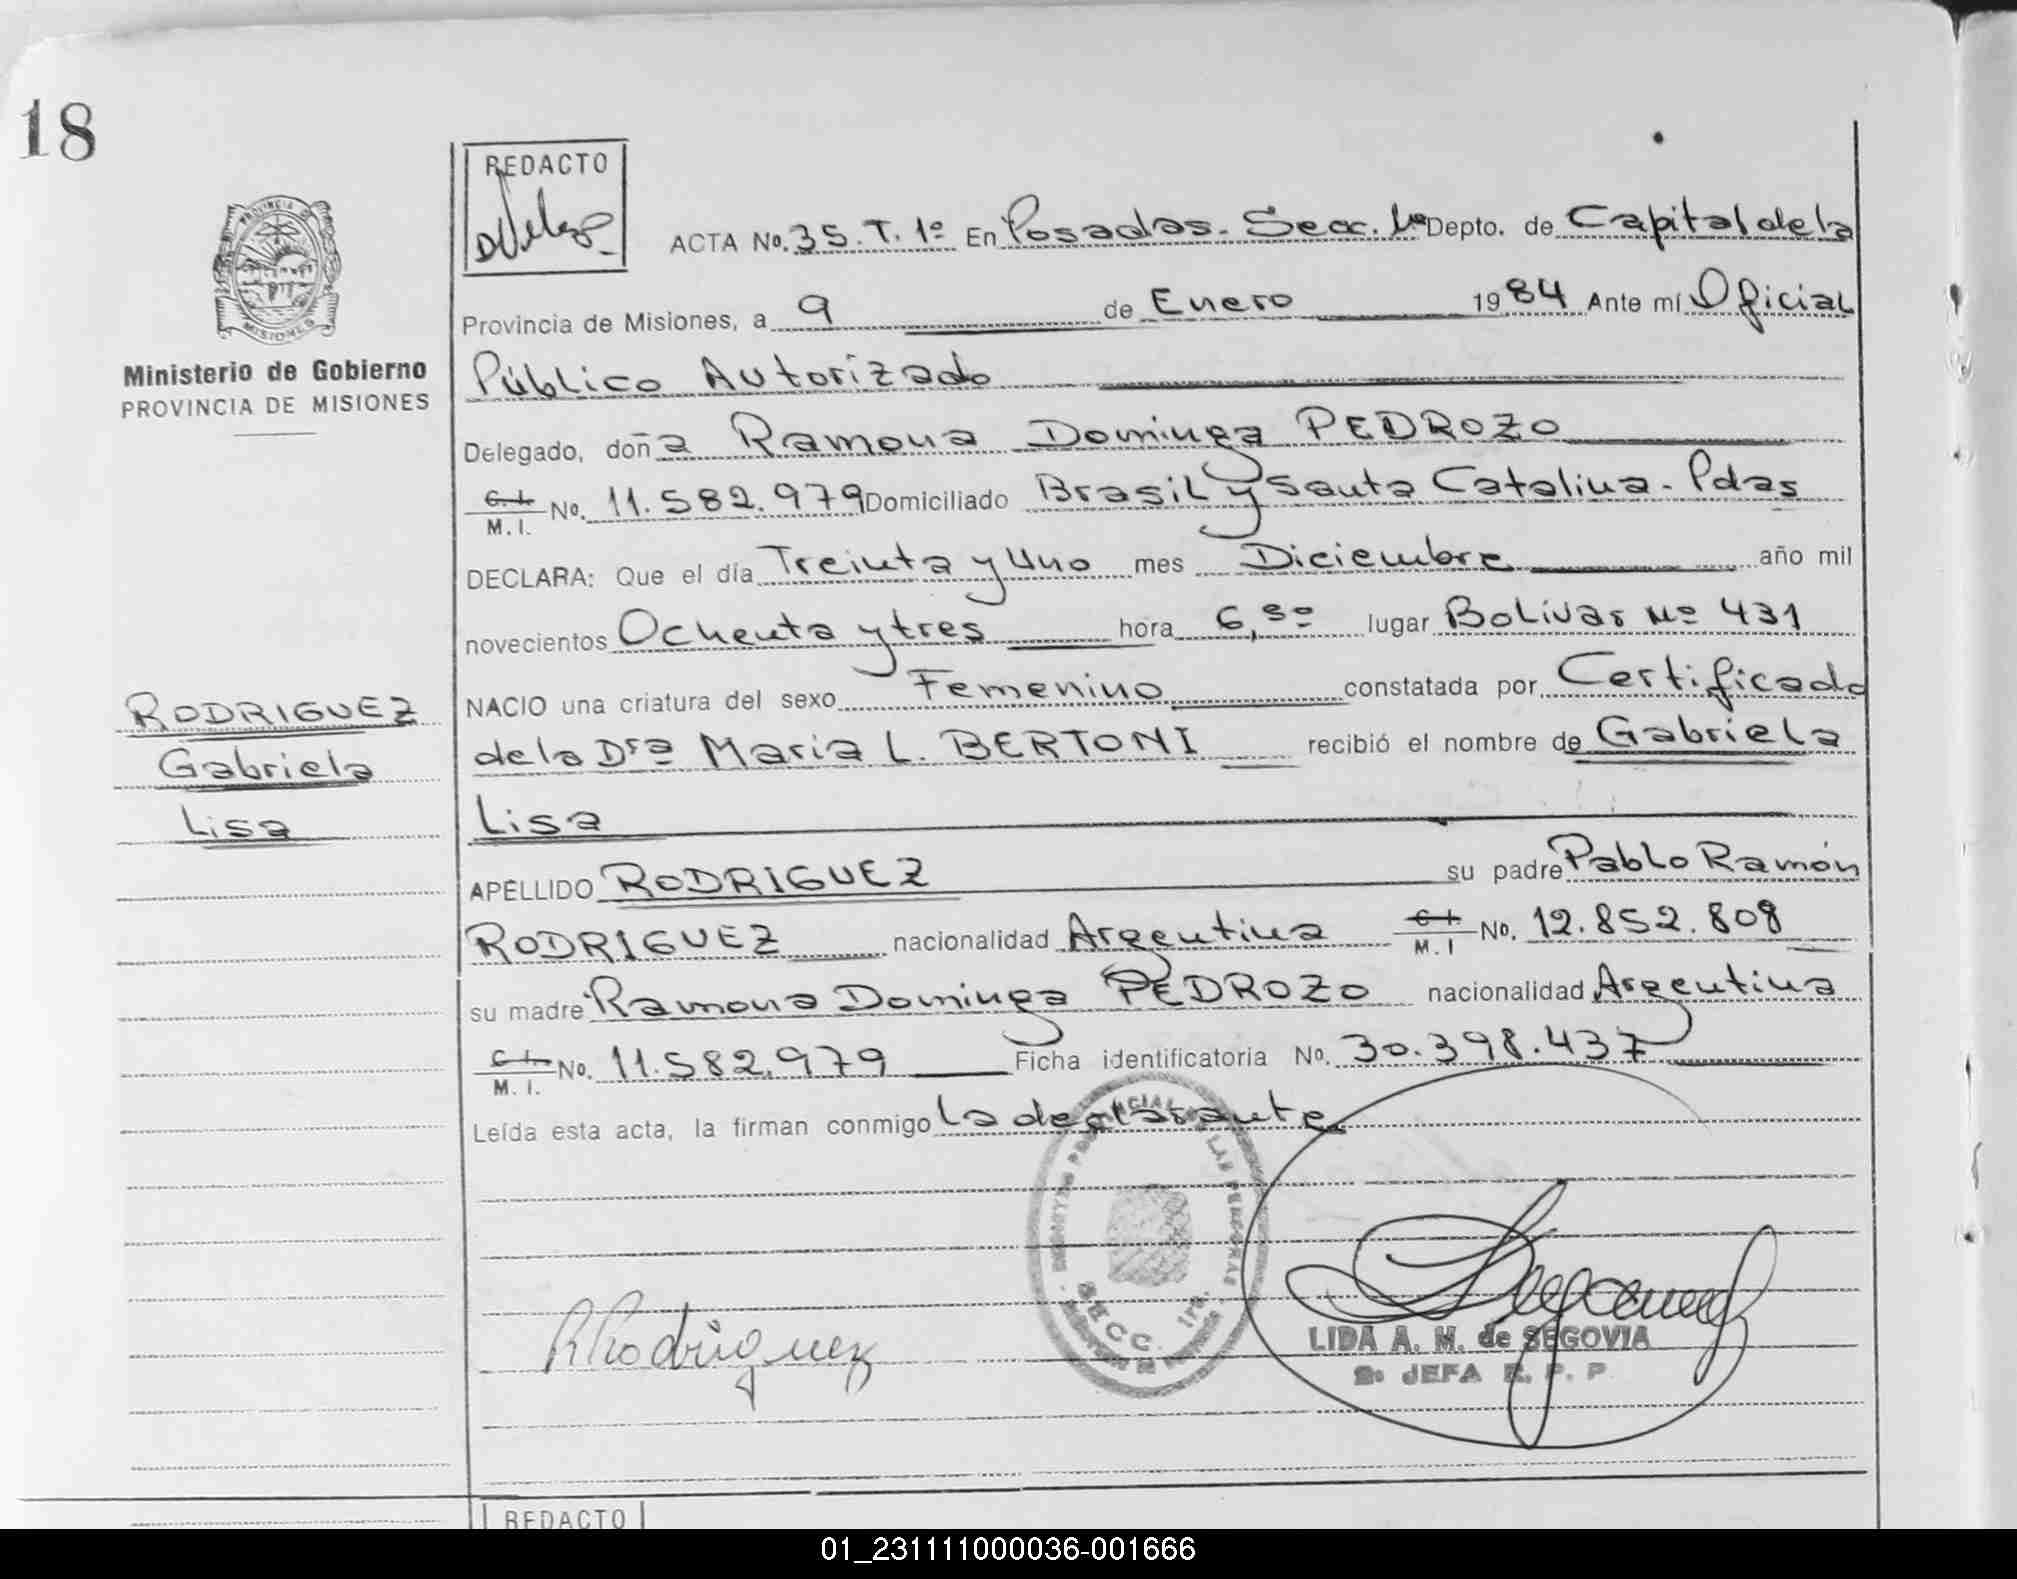 18
REDACTO
ACTA No. 35. T. 1º En Posadas. Secc. 1ra Depto. de Capital de la
Provincia de Misiones, a 9 de Enero 1984 Ante mí Oficial
Público Autorizado
Delegado, doña Ramona Dominga PEDROZO
C. I.
M. I. No. 11.582.979 Domiciliado Brasil y Santa Catalina. Pdas
DECLARA: Que el día Treinta y Uno mes Diciembre año mil
novecientos Ochenta y tres hora 6,30 lugar Bolivar Nº 431
NACIO una criatura del sexo Femenino constatada por Certificado
de la Dra Maria L. BERTONI recibió el nombre de Gabriela
Lisa
APELLIDO RODRIGUEZ su padre Pablo Ramón
RODRIGUEZ nacionalidad Argentina C. I. M. I No. 12.852.808
su madre Ramona Dominga PEDROZO nacionalidad Argentina
C. I.
M. I. No. 11.582.979 Ficha identificatoria No. 30.398.437
Leída esta acta, la firman conmigo la declarante
PROVINCIA DE MISIONES
Ministerio de Gobierno
PROVINCIA DE MISIONES
RODRIGUEZ
Gabriela
Lisa
RRodriguez
SECC. 1ra.
LIDA A. M. de SEGOVIA
2º JEFA R. P. P.
REDACTO
01_231111000036-001666